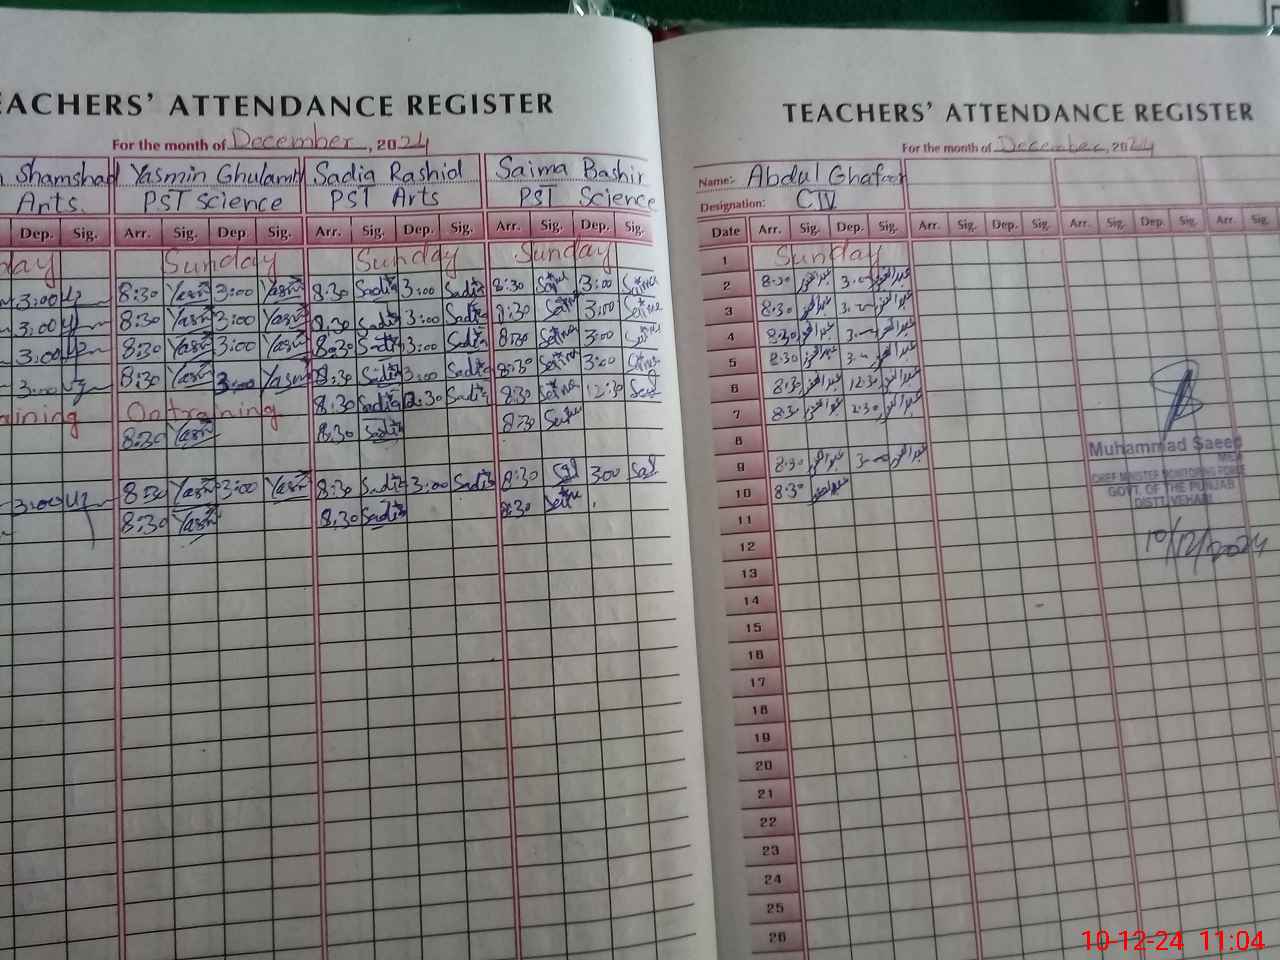 TEACHERS' ATTENDANCE REGISTER
For the month of December, 2024
Shamshad Yasmin Ghulam Sadia Rashid Saima Bashir
Arts. PST Science PST Arts PST Science
Dep. Sig. Arr. Sig. Dep. Sig. Arr. Sig. Dep. Sig. Arr. Sig. Dep. Sig.
day Sunday Sunday Sunday
3:00 8:30 Yasm 3:00 Yasm 8:30 Sadia 3:00 Sadia 8:30 3:00 Saima
3:00 8:30 Yasm 3:00 Yasm 8:30 Sadia 3:00 Sadia 8:30 3:00 Saima
3:00 8:30 Yasm 3:00 Yasm 8:30 Sadia 3:00 Sadia 8:30 Saima 3:00
3:00 8:30 Yasm 3:00 Yasm 8:30 Sadia 3:00 Sadia 8:30 Saima 3:00 Saima
aining On training 8:30 Sadia 12:30 Sadia 8:30 Saima 12:30
8:30 Yasm 8:30 Sadia 8:30
3:00 8:30 Yasm 3:00 Yasm 8:30 Sadia 3:00 Sadia 8:30 3:00
8:30 Yasm 8:30 Sadia 8:30
TEACHERS' ATTENDANCE REGISTER
For the month of December, 2024
Name:- Abdul Ghafoor
Designation: CTV
Date Arr. Sig. Dep. Sig. Arr. Sig. Dep. Sig. Arr. Sig. Dep. Sig. Arr. Sig.
1 Sunday
2 8:30 3:00
3 8:30 3:00
4 8:30 3:00
5 8:30 3:00
6 8:30 12:30
7 8:30 2:30
8
9 8:30 3:00
10 8:30
11
12
13
14
15
16
17
18
19
20
21
22
23
24
25
26
Muhammad Saeed
MEA
CHIEF MINISTER MONITORING FORCE
GOVT. OF THE PUNJAB
DISTT. VEHARI
10/12/2024
10-12-24 11:04